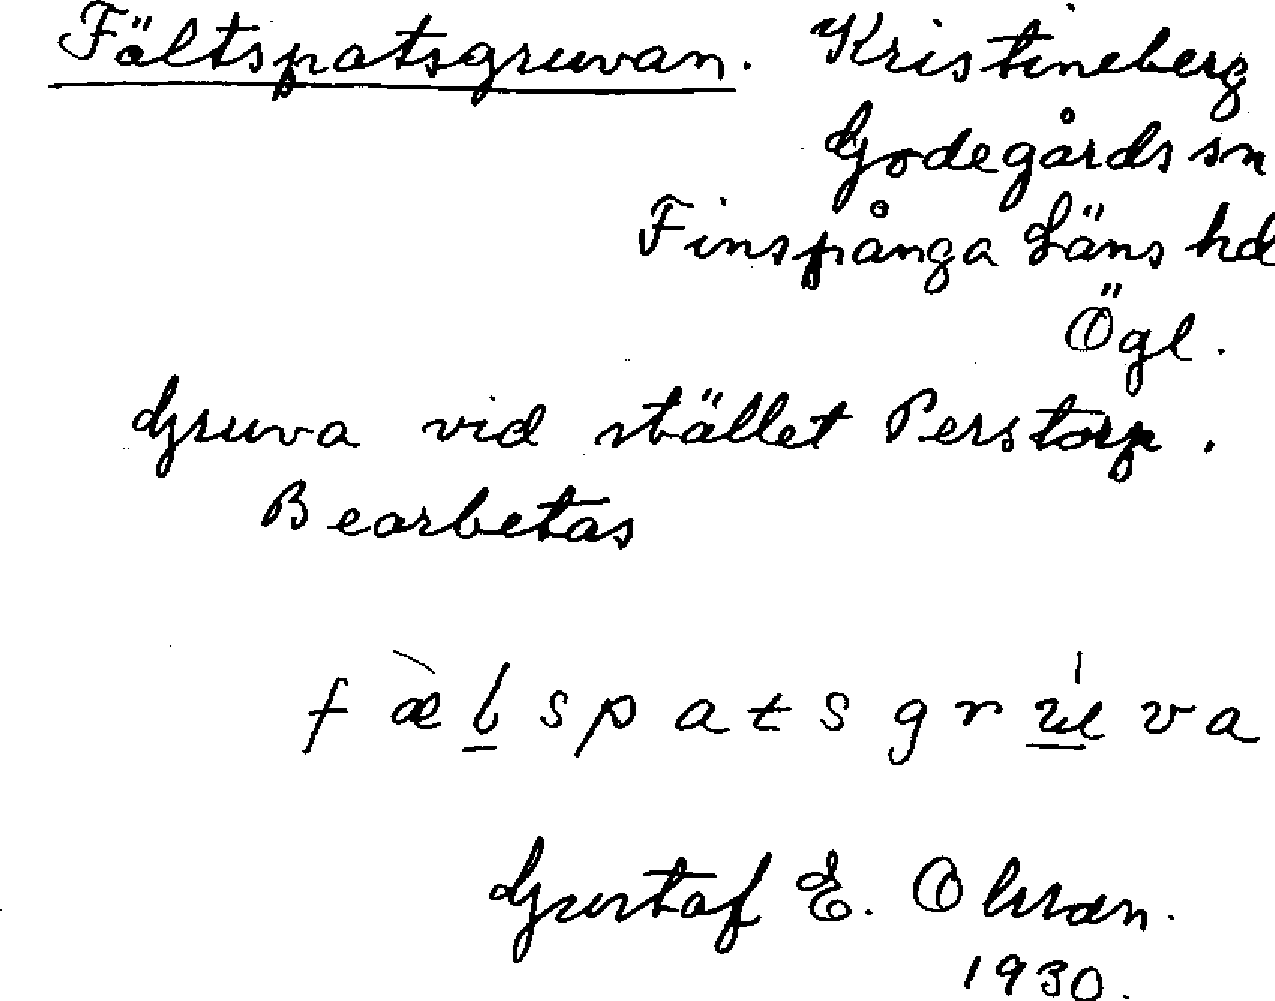 Fältspatsgruvan. Kristineberg
Godegårds sn
Finspånga Läns hd
Ögl.
Gruva vid stället Perstorp.
Bearbetas
fæ̀lspatsgrúva
Gustaf E. Olsson.
1930.